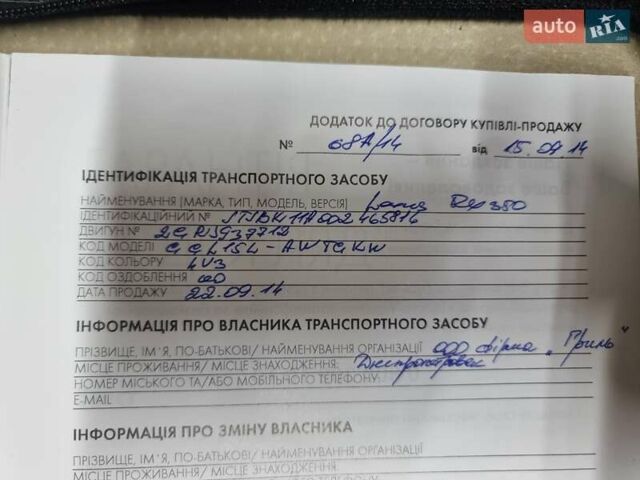 auto RIA .com
ДОДАТОК ДО ДОГОВОРУ КУПІВЛІ-ПРОДАЖУ
№ 68А/14 від 15.09.14
ІДЕНТИФІКАЦІЯ ТРАНСПОРТНОГО ЗАСОБУ
НАЙМЕНУВАННЯ (МАРКА, ТИП, МОДЕЛЬ, ВЕРСІЯ)
ІДЕНТИФІКАЦІЙНИЙ № JTJBK11A002465816
ДВИГУН № 2GRJ937712
КОД МОДЕЛІ GGL15L-AWTGKW
КОД КОЛЬОРУ 4V3
КОД ОЗДОБЛЕННЯ
ДАТА ПРОДАЖУ 22.09.14
ІНФОРМАЦІЯ ПРО ВЛАСНИКА ТРАНСПОРТНОГО ЗАСОБУ
ПРІЗВИЩЕ, ІМ'Я, ПО-БАТЬКОВІ/ НАЙМЕНУВАННЯ ОРГАНІЗАЦІЇ ООО фірма „Гриль"
МІСЦЕ ПРОЖИВАННЯ/ МІСЦЕ ЗНАХОДЖЕННЯ: Дніпропетровськ
НОМЕР МІСЬКОГО ТА/АБО МОБІЛЬНОГО ТЕЛЕФОНУ:
E-MAIL
ІНФОРМАЦІЯ ПРО ЗМІНУ ВЛАСНИКА
ПРІЗВИЩЕ, ІМ'Я, ПО-БАТЬКОВІ/ НАЙМЕНУВАННЯ ОРГАНІЗАЦІЇ
МІСЦЕ ПРОЖИВАННЯ/ МІСЦЕ ЗНАХОДЖЕННЯ: